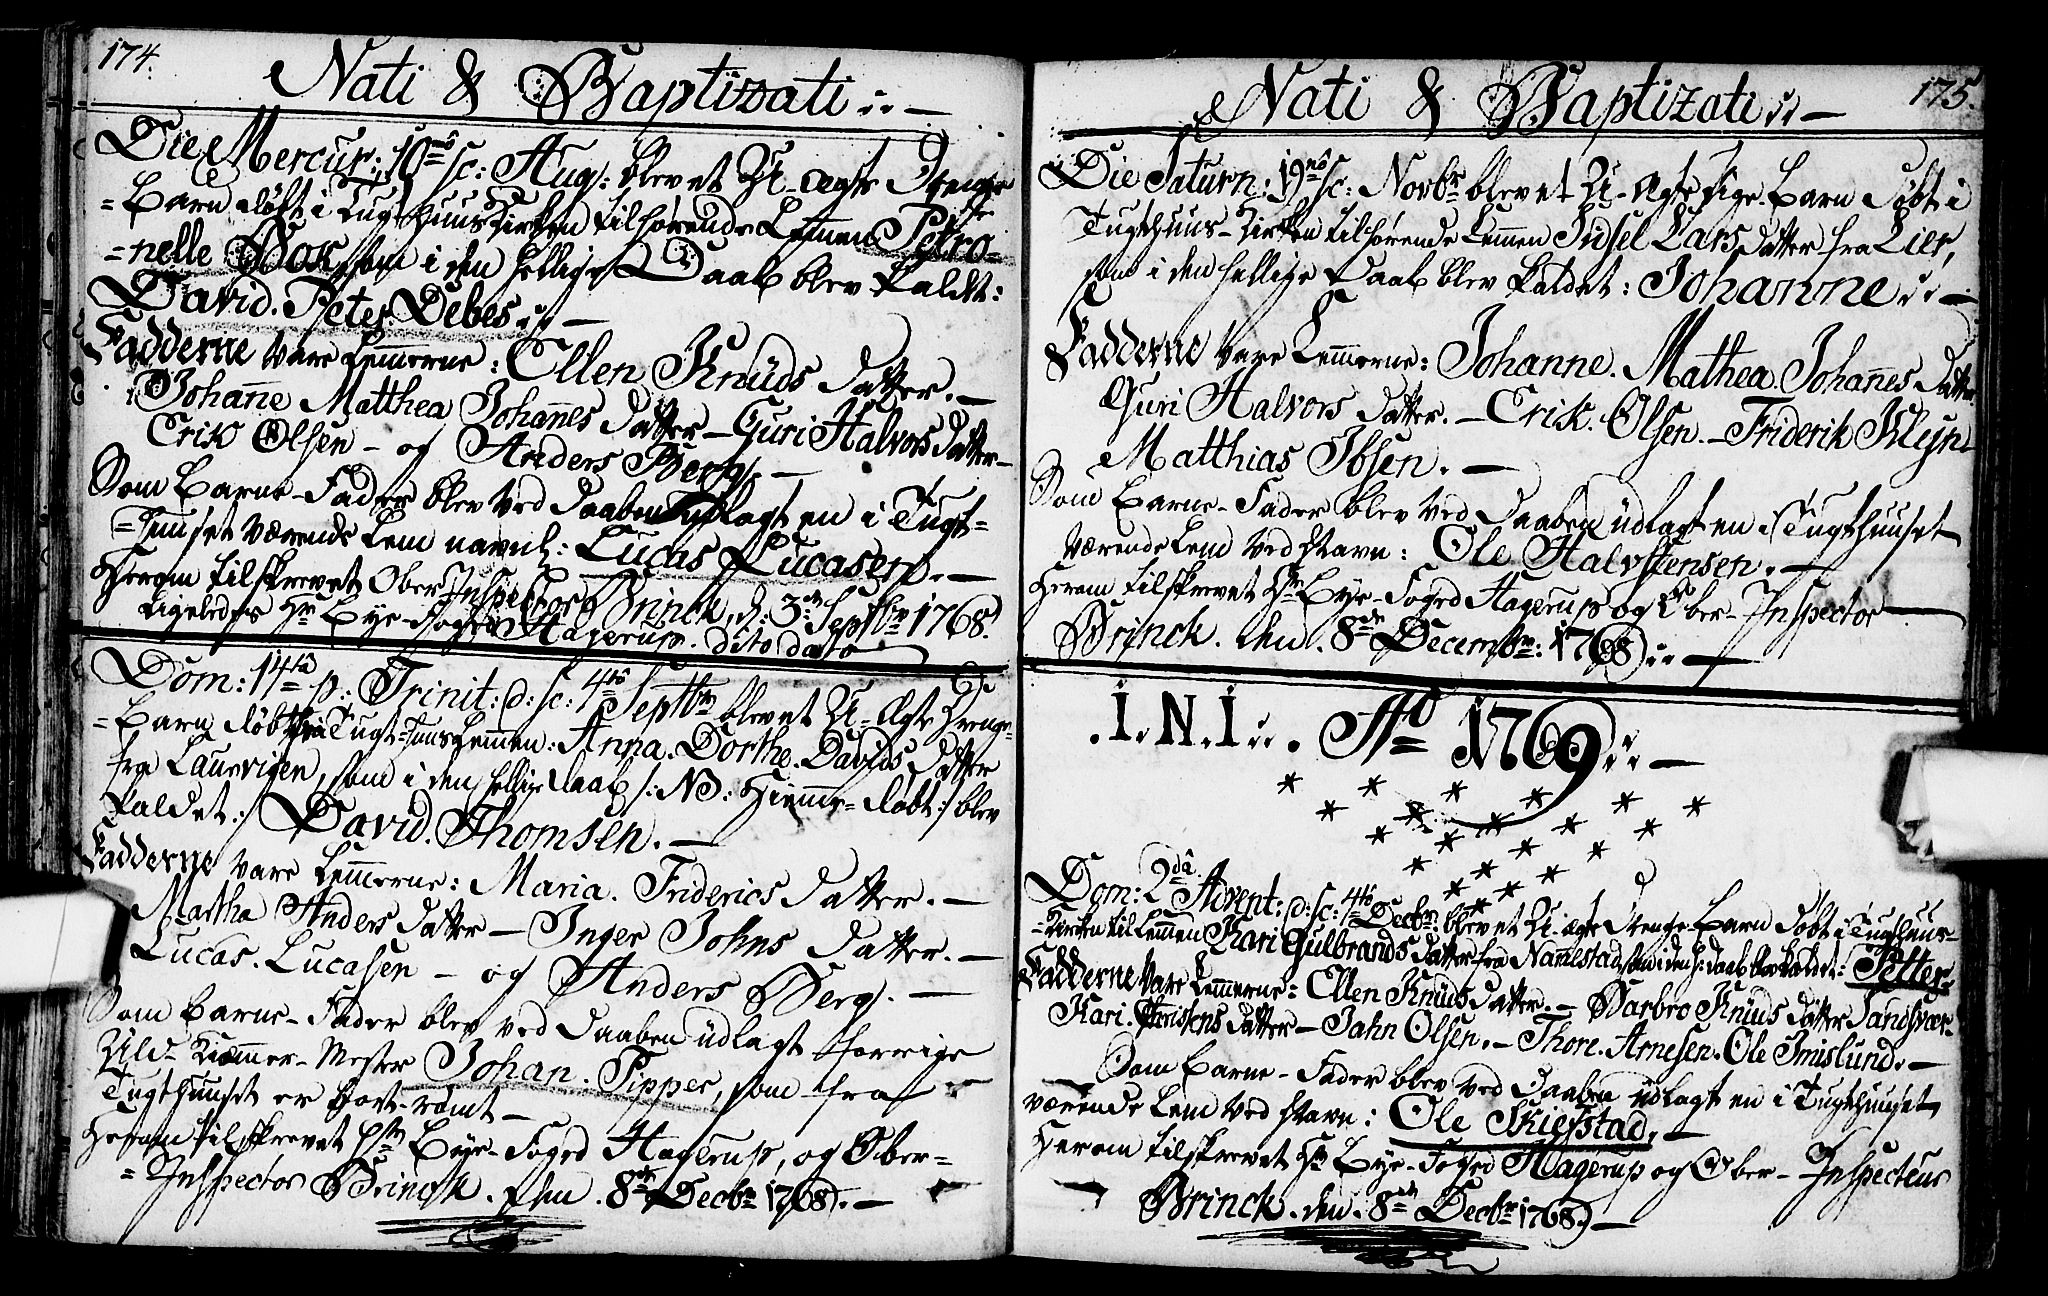 174.
Nati & Baptizati
Die Mercur: 10mô sc: Aug: blev et U-ægte Drenge
=Barn døbt i Tugthuus Kirken tilhørende Lemmen Petro=
=nelle Bok, som i den hellige Daab blev kaldt:
David. Peter Debes
Fadderne vare Lemmerne: Ellen Knuds Datter. —
Johañe Matthea Johañes Datter — Guri Halvors Datter —
Erik Olsen — og Anders Berg. —
Som Barne-Fader blev ved Daaben udlagt en i Tugt=
=huuset værende Lem navnl: Lucas Lucasen. —
Herom tilskrevet Ober Inspector Brinck, d: 3de Septbr 1768.
Ligeledes Hr Bye-Foged Hagerup. dito dato
Dom: 14ta p: Trinit: d: sc: 4tô Septbr blev et U-Ægte Drenge=
=Barn døbt fra Tugt-huus Lemmen: Anna. Dorthe. Davids Datter
fra Laurvigen, som i den hellige Daab /: NB: Hiemme-døbt :/ blev
kaldet: David. Thomsen. —
Fadderne vare Lemmerne: Maria. Friderics Datter. —
Martha Anders Datter — Inger Johns Datter. —
Lucas. Lucasen — og Anders Berg. —
Som Barne-Fader blev ved Daaben udlagt forrige
Uld-Kiæmmer-Mester Johan. Pipper, som fra
Tugthuuset er bort-rømt —
Herom tilskrevet Hr Bye-Foged Hagerup, og Ober=
=Inspector Brinck. den. 8de Decbr 1768. —
175.
Nati & Baptizati
Die Saturn: 19nô sc: Novbr blev et U-Ægte Pige-Barn døbt i
Tugthuus-Kirken tilhørende Lemmen Sidsel Lars Datter fra Lier,
som i den hellige Daab blev kaldet: Johanne
Fadderne vare Lemmerne: Johanne. Mathea. Johañes Datter
Guri Halvors Datter. — Erik. Olsen. — Friderik Kleyn
Matthias Ibsen. —
Som Barne-Fader blev ved Daaben udlagt en i Tugthuuset
værende Lem ved Navn: Ole Halvstensen. —
Herom tilskrevet Hr Bye-Foged Hagerup og Ober-Inspector
Brinck. den. 8de Decembr: 1768
.I.N.I. Aō 1769
Dom: 2dâ Advent: d: sc: 4tô Decbr: blev et U-ægte Drenge-Barn døbt i Tugthuus-
-Kirken til Lemmen Kari Gulbrands Datter fra Nannestad, som i den h: Daab blev kaldet: Petter
Fadderne vare Lemmerne: Ellen Knuds Datter. — Barbro Knuds Datter Sandsvær
Kari. Christens Datter — Jahn Olsen. — Thore. Arnesen. Ole Smislund. —
Som Barne-Fader blev ved Daaben udlagt en i Tugthuuset
værende Lem ved Navn: Ole Skiefstad. —
Herom tilskrevet Hr Bye-Foged Hagerup og Ober-Inspecteur
Brinck. den. 8de Decbr 1768. —